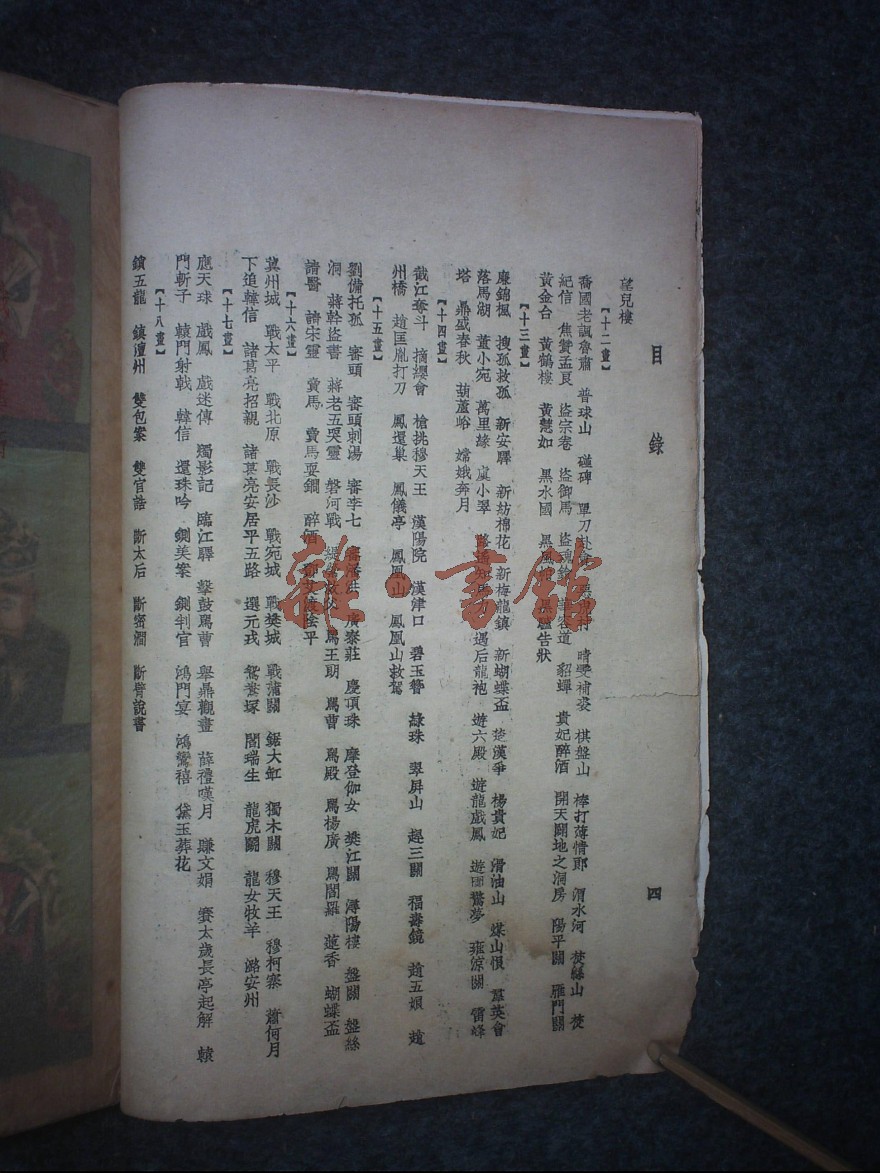 目錄
四
望兒樓
【十二畫】
喬國老諷魯肅 普球山 碰碑 單刀赴 晴雯補裘 棋盤山 棒打薄情郎 渭水河 焚緜山 焚
紀信 焦贊孟良 盜宗卷 盜御馬 盜魂鈴 華容道 貂蟬 貴妃醉酒 開天闢地之洞房 陽平關 雁門關
黃金台 黃鶴樓 黃慧如 黑水國 黑風 黑驢告狀
【十三畫】
廉錦楓 搜孤救孤 新安驛 新紡棉花 新梅龍鎮 新蝴蝶盃 楚漢爭 楊貴妃 滑油山 煤山恨 羣英會
落馬湖 董小宛 萬里緣 虞小翠 路遙知馬力 遇后龍袍 遊六殿 遊龍戲鳳 遊園驚夢 雍涼關 雷峰
塔 鼎盛春秋 葫蘆峪 嫦娥奔月
【十四畫】
截江奪斗 摘纓會 槍挑穆天王 漢陽院 漢津口 碧玉簪 綠珠 翠屏山 趕三關 福壽鏡 趙五娘 趙
州橋 趙匡胤打刀 鳳還巢 鳳儀亭 鳳凰山 鳳凰山救駕
【十五畫】
劉備托孤 審頭 審頭刺湯 審李七 審潘洪 廣泰莊 慶頂珠 摩登伽女 樊江關 潯陽樓 盤關 盤絲
洞 蔣幹盜書 蔣老五哭靈 磐河戰 緹縈救父 罵王朗 罵曹 罵殿 罵楊廣 罵閻羅 蓮香 蝴蝶盃
請醫 請宋靈 賣馬 賣馬耍鐧 醉酒 鄧艾渡陰平
【十六畫】
冀州城 戰太平 戰北原 戰長沙 戰宛城 戰樊城 戰蒲關 鋸大缸 獨木關 穆天王 穆柯寨 蕭何月
下追韓信 諸葛亮招親 諸葛亮安居平五路 選元戎 鴛鴦塚 閻瑞生 龍虎鬭 龍女牧羊 潞安州
【十七畫】
應天球 戲鳳 戲迷傳 燭影記 臨江驛 擊鼓罵曹 舉鼎觀畫 薛禮嘆月 賺文娟 賽太歲長亭起解 轅
門斬子 轅門射戟 韓信 還珠吟 鍘美案 鍘判官 鴻門宴 鴻鸞禧 黛玉葬花
【十八畫】
鎖五龍 鎮澶州 雙包案 雙官誥 斷太后 斷密澗 斷臂說書
雜·書館